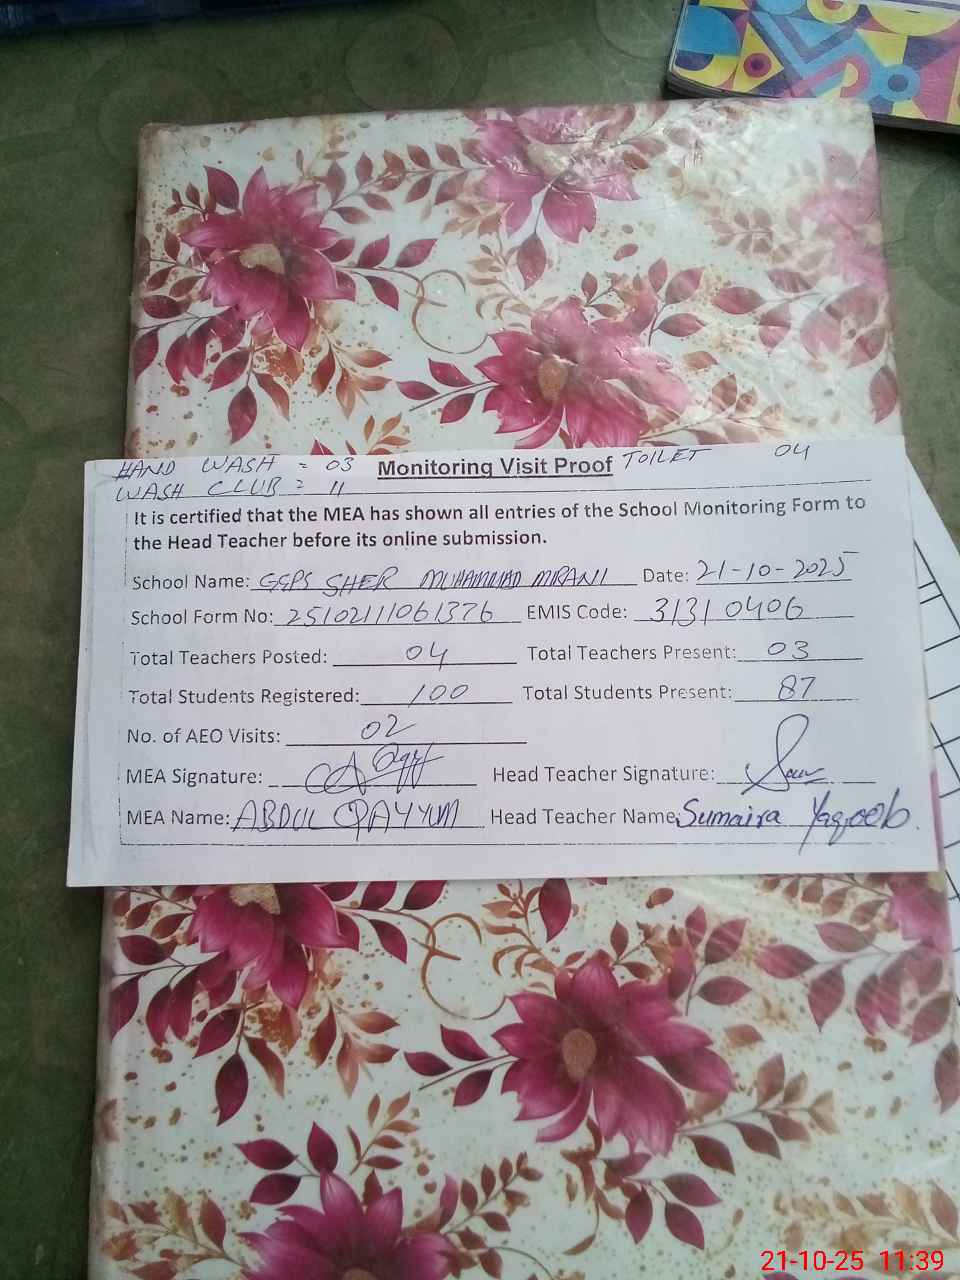 HAND WASH = 03 Monitoring Visit Proof TOILET 04
WASH CLUB = 11
It is certified that the MEA has shown all entries of the School Monitoring Form to
the Head Teacher before its online submission.
School Name: GGPS SHER MUHAMMAD MIRANI Date: 21-10-2025
School Form No: 25102111061376 EMIS Code: 31310406
Total Teachers Posted: 04 Total Teachers Present: 03
Total Students Registered: 100 Total Students Present: 87
No. of AEO Visits: 02
MEA Signature: Head Teacher Signature:
MEA Name: ABDUL QAYYUM Head Teacher Name: Sumaira Yaqoob.
21-10-25 11:39